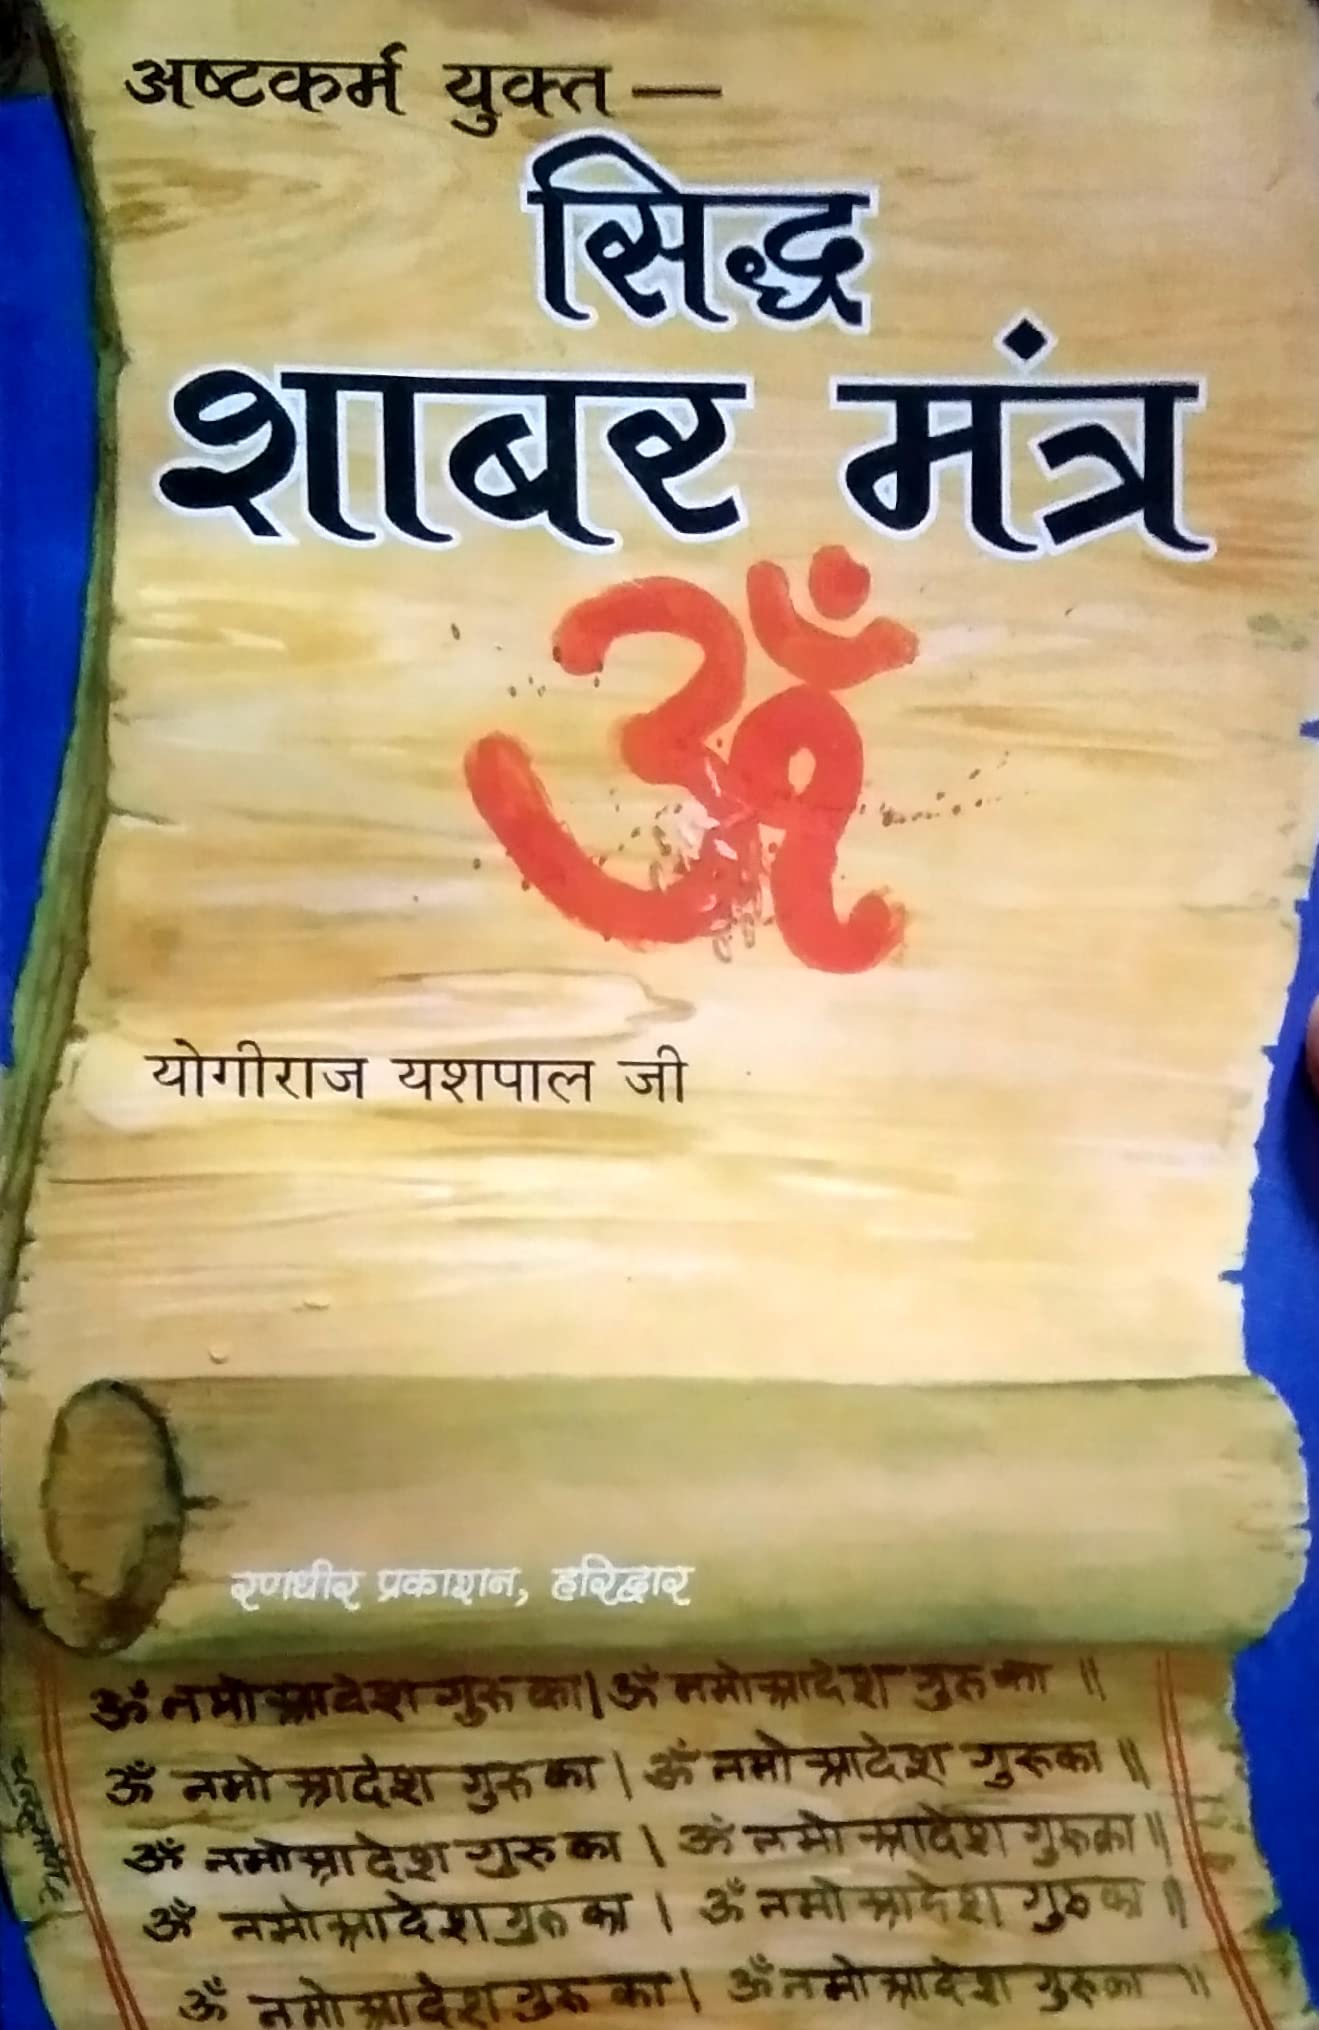 अष्टकर्म युक्त —
सिद्ध
शाबर मंत्र
ॐ
योगीराज यशपाल जी
रणधीर प्रकाशन, हरिद्वार
ॐ नमो आदेश गुरु का। ॐ नमो आदेश गुरु का ॥
ॐ नमो आदेश गुरु का। ॐ नमो आदेश गुरु का ॥
ॐ नमो आदेश गुरु का। ॐ नमो आदेश गुरु का ॥
ॐ नमो आदेश गुरु का। ॐ नमो आदेश गुरु का ॥
ॐ नमो आदेश गुरु का। ॐ नमो आदेश गुरु का ॥